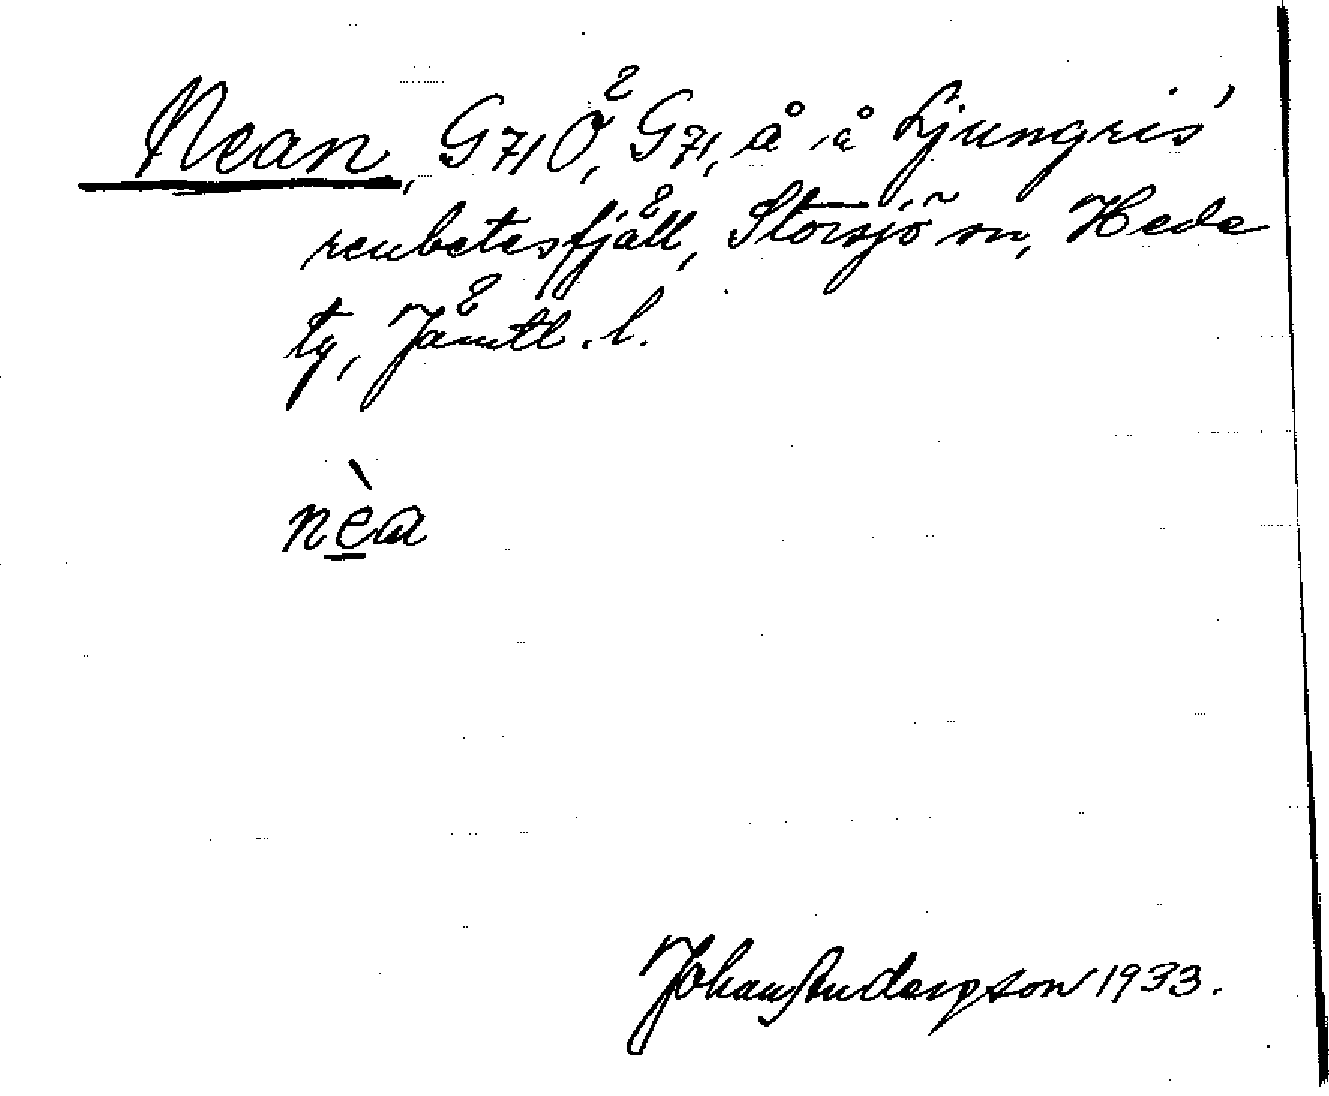 Nean, G71Ö, G71, å i å Ljungris'
renbetesfjäll, Storsjö sn, Hede
tg, Jämtl. l.
nèa
Johan Anderson 1933.